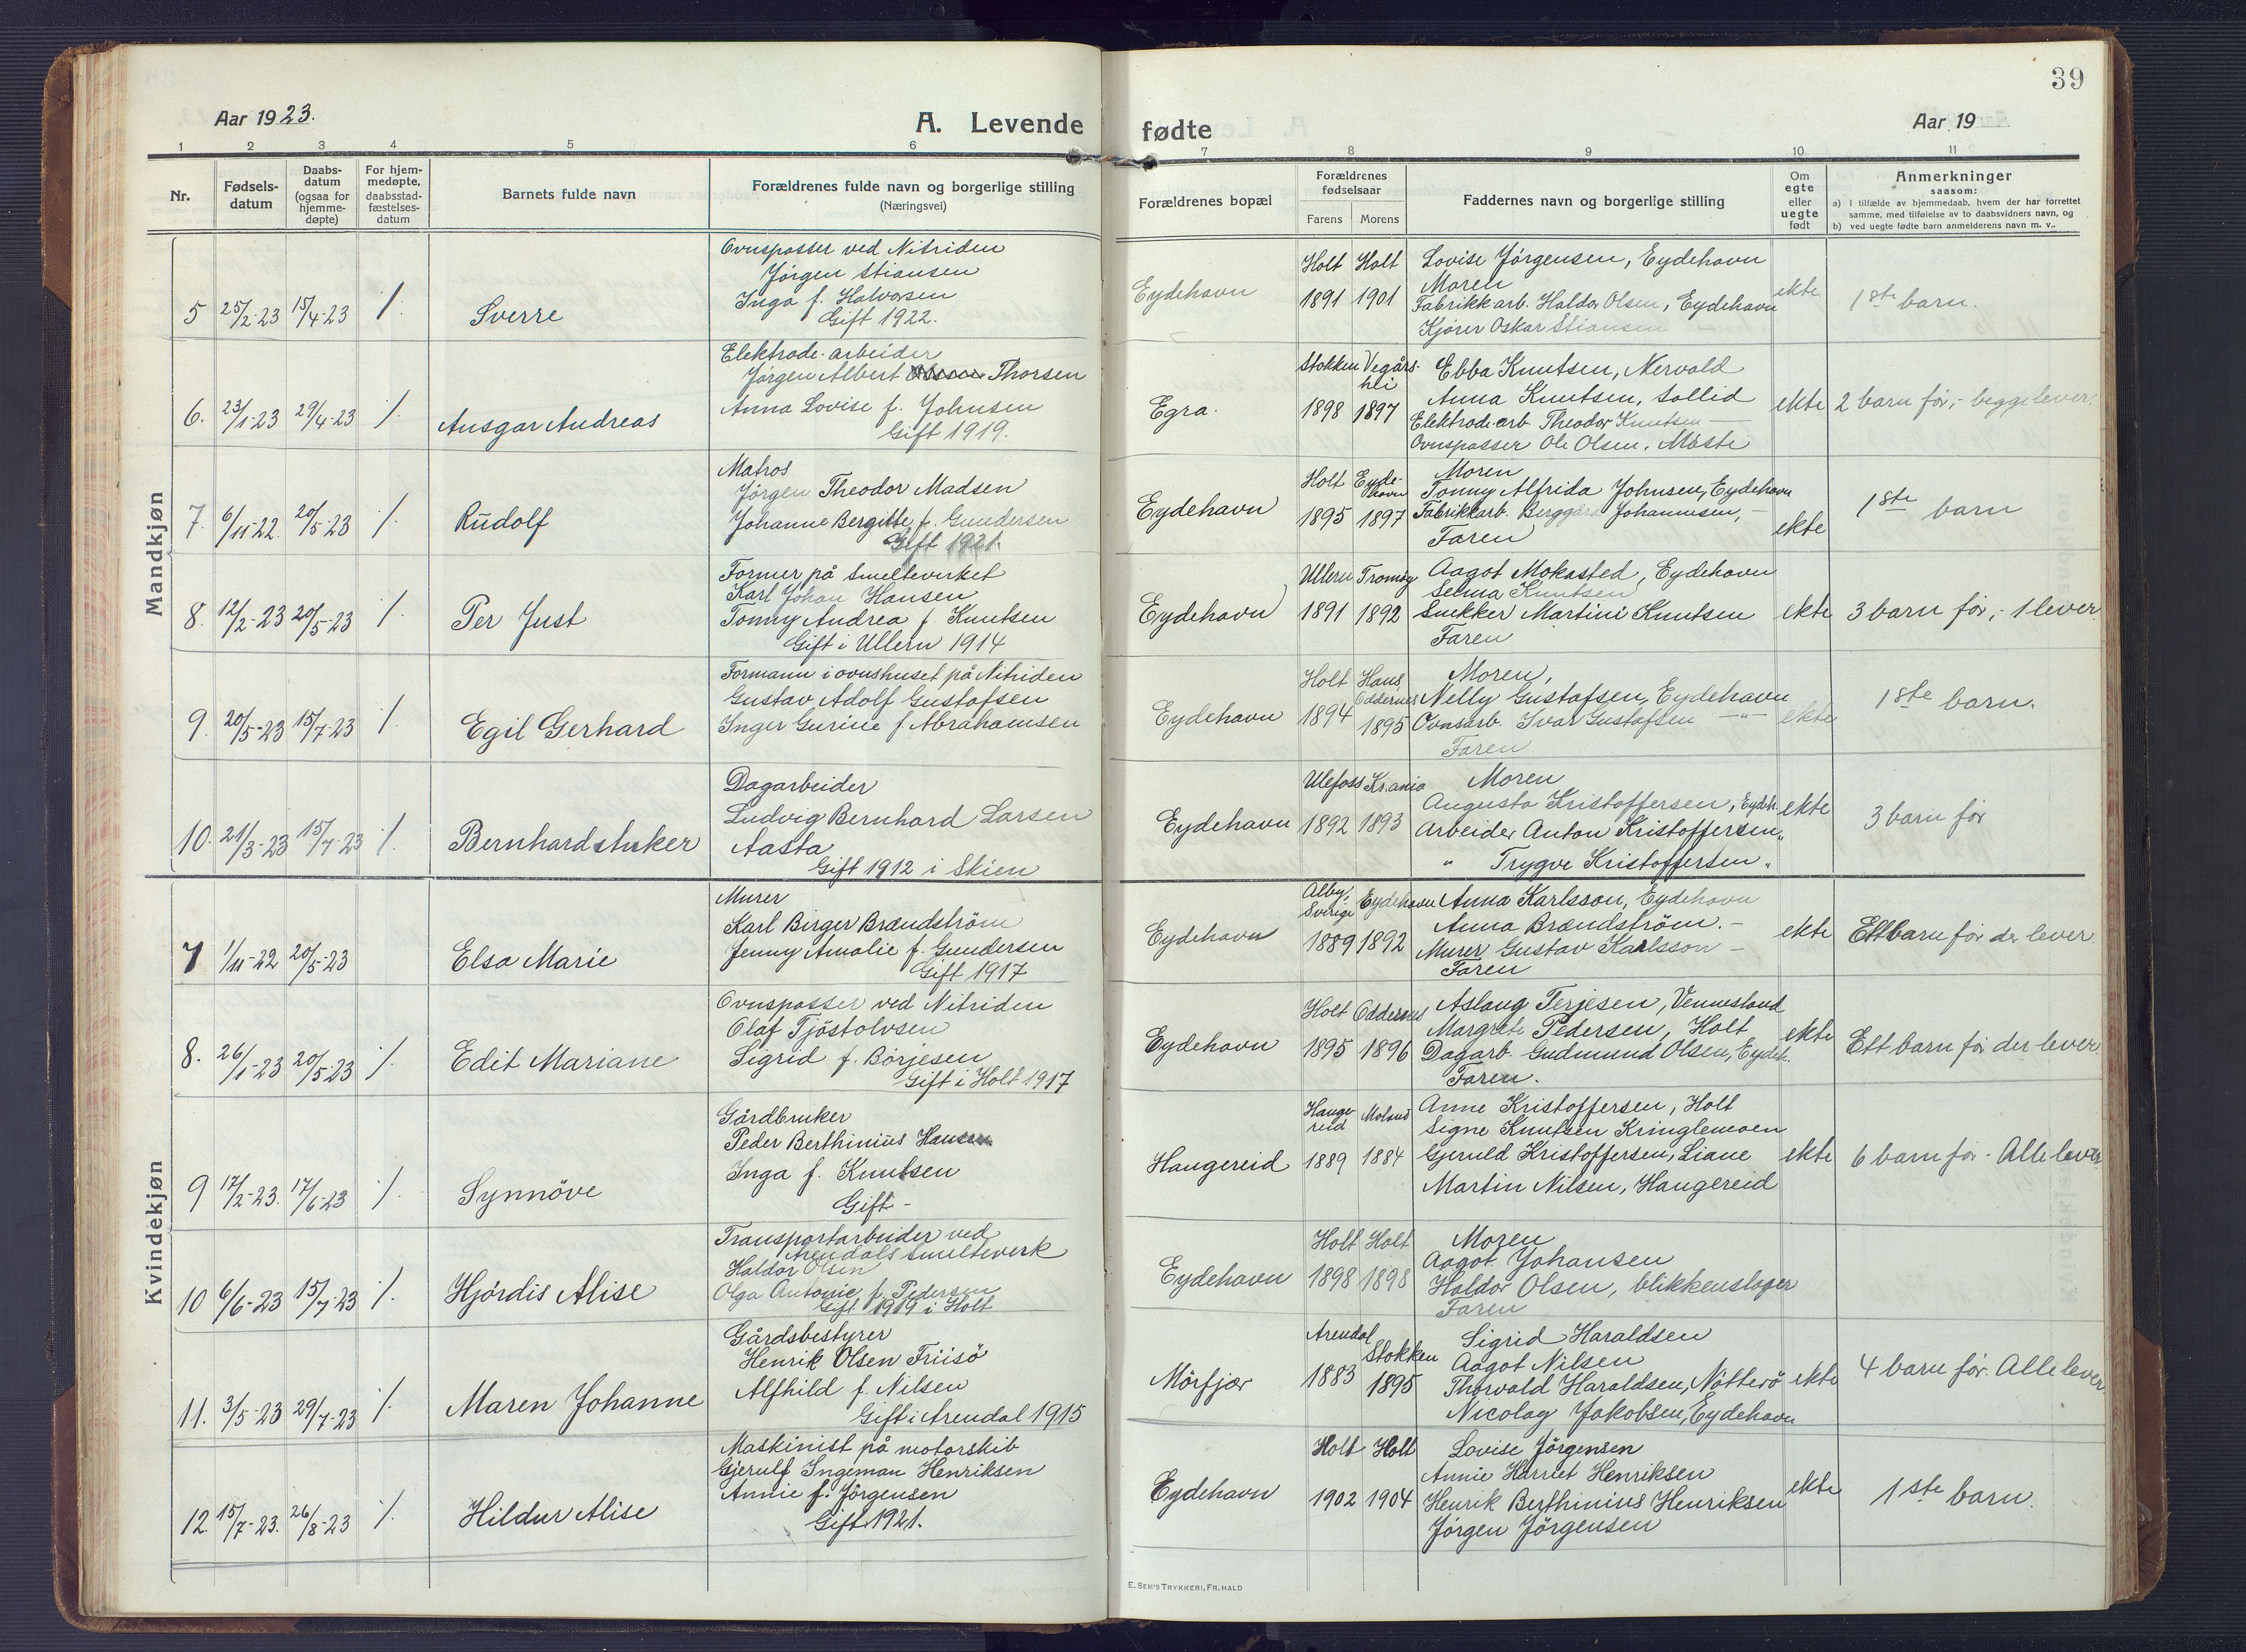 39
Aar 1923.
A. Levende
fødte
Aar 19
1 2 3 4 5 6 7 8 9 10 11
Nr.
Fødsels-
datum
Daabs-
datum
(ogsaa for
hjemme-
døpte)
For hjem-
medøpte,
daabsstad-
fæstelses-
datum
Barnets fulde navn
Forældrenes fulde navn og borgerlige stilling
(Næringsvei)
Forældrenes bopæl
Forældrenes
fødselsaar
Farens Morens
Faddernes navn og borgerlige stilling
Om
egte
eller
uegte
født
Anmerkninger
saasom:
a) i tilfælde av hjemmedaab, hvem der har forrettet
samme, med tilføielse av to daabsvidners navn, og
b) ved uegte fødte barn anmelderens navn m. v..
Mandkjøn
5 25/2-23 15/4-23 ./. Sverre
Ovnspasser ved Nitriden
Jörgen Stiansen
Inga f. Halvorsen
Gift 1922.
Eydehavn
Holt Holt
1891 1901
Lovise Jörgensen, Eydehavn
Moren
Fabrikkarb. Haldor Olsen, Eydehavn
Kjörer Oskar Stiansen —
ekte
1ste barn.
6. 23/1-23 29/4-23 ./. Ansgar Andreas
Elektrode-arbeider
Jörgen Albert Thorsen
Anna Lovise f. Johnsen
Gift 1919.
Egra.
Stokken Vegårs-
hei
1898 1897
Ebba Knutsen, Nervold
Anna Knutsen, Sollid
Elektrode-arb. Theodor Knutsen —
Ovnspasser Ole Olsen, Möste
ekte
2 barn för, - begge lever.
7. 6/11-22. 20/5-23 ./. Rudolf
Matros
Jörgen Theodor Madsen
Johanne Bergitte f. Gundersen
Gift 1921.
Eydehavn
Holt Eyde-
havn
1895 1897
Moren
Tonny Alfrida Johnsen, Eydehavn
Fabrikkarb. Johannesen, —
Faren
ekte
1ste barn
8. 12/2-23 20/5-23 ./. Per Just
Former på Smelteverket
Karl Johan Hansen
Tonny Andrea f. Knutsen
Gift i Ullern 1914
Eydehavn
Ullern Tromöy
1891 1892
Aagot Mokasted, Eydehavn
Selma Knutsen
Snekker Martini Knutsen
Faren
ekte
3 barn för, - 1 lever.
9. 20/5-23 15/7-23 ./. Egil Gerhard
Formann i ovnshuset på Nitriden
Gustav Adolf Gustafsen
Inger Gurine f. Abrahamsen
Eydehavn
Holt Hans
Oddernes
1894 1895
Moren,
Nelly Gustafsen, Eydehavn
Ovnsarb. Ivar Gustafsen —"—
Faren
ekte
1ste barn.
10. 21/3-23 15/7-23 ./. Bernhard
Dagarbeider
Ludvig Bernhard Larsen
Aasta
Gift 1912 i Skien
Eydehavn
Ulefoss Kr.ania
1892 1893
Moren
Augusta Kristoffersen, Eydeh.
Arbeider Anton Kristoffersen "
" Trygve Kristoffersen "
ekte
3 barn för
Kvindekjøn
7 1/11-22 20/5-23 Elsa Marie
Murer
Karl Birger Brændström
Jenny Amalie f. Gundersen
Gift 1917
Eydehavn
Alby,
Sverige Eydehavn
1889 1892
Anna Karlsson, Eydehavn
Anna Brændström. -
Murer Gustav Karlsson -
Faren
ekte
Ett barn för der lever
8. 26/1-23 20/5-23 ./. Edit Mariane
Ovnspasser ved Nitriden
Olaf Tjöstolvsen
Sigrid f. Börjesen
Gift i Holt 1917
Eydehavn
Holt Oddernes
1895 1896
Aslaug Terjesen, Vennesland
Margrete Pedersen, Holt
Dagarb. Gudmund Olsen, Eydeh.
Faren.
ekte
Ett barn för der lever.
9 17/2-23. 17/6-23 ./. Synnöve
Gårdbruker
Peder Berthinius Hansen
Inga f. Knutsen
Gift -
Haugereid
Hauge-
reid Moland
1889 1884
Anne Kristoffersen, Holt
Signe Knutsen Kringlemoen
Gjeruld Kristoffersen, Liane
Martin Nilsen, Haugereid
ekte
6 barn för - Alle lever.
10 6/6-23 15/7-23 ./. Hjördis Alise
Transportarbeider ved
Arendals smelteverk
Haldor Olsen
Olga Antonie f. Pedersen
Gift 1919 i Holt
Eydehavn
Holt Holt
1898 1898
Moren
Aagot Johansen
Haldor Olsen, blikkenslager
Faren
11. 3/5-23 29/7-23 ./. Maren Johanne
Gårdsbestyrer
Henrik Olsen Friisö
Alfhild f. Nilsen
Gift i Arendal 1915
Mörfjær
Arendal Stokken
1883 1895
Sigrid Haraldsen
Aagot Nilsen
Thorvald Haraldsen, Nötterö
Nicolay Jakobsen, Eydehavn
ekte
4 barn för. Alle lever
12. 15/7-23. 26/8-23 ./. Hildur Alise
Maskinist på motorskib
Gjerulf Ingeman Henriksen
Annie f. Jörgensen
Gift 1921.
Eydehavn
Holt Holt
1902 1904
Lovise Jörgensen
Annie Harriet Henriksen
Henrik Berthinius Henriksen
Jörgen Jörgensen
ekte
1ste barn.
E. SEM'S TRYKKERI, FR.HALD